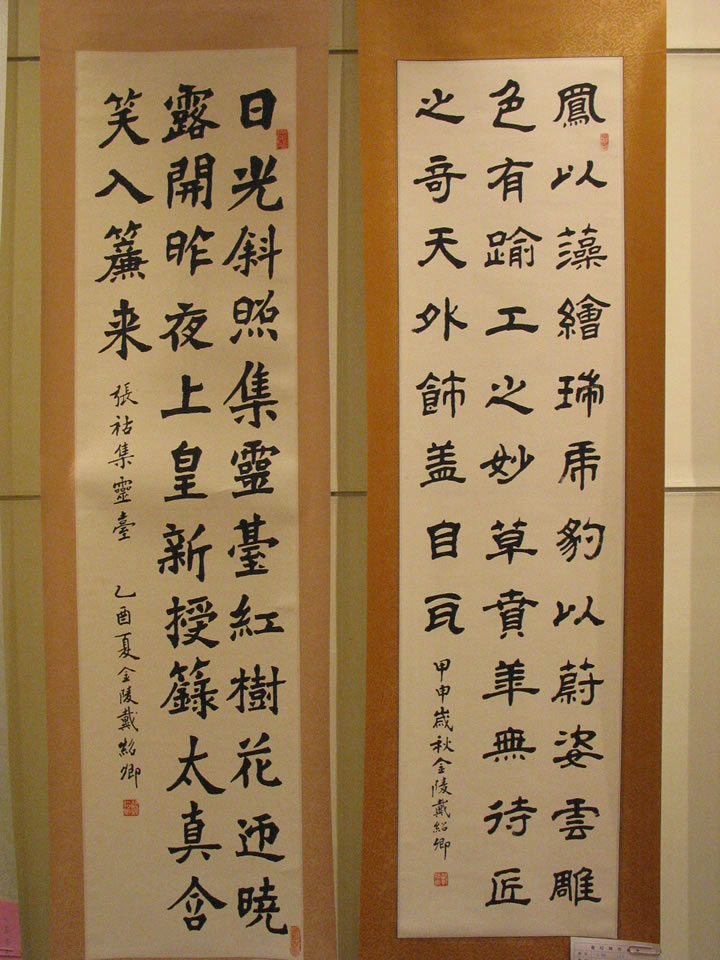 鳳以藻繪瑞虎豹以蔚姿雲雕
色有踰工之妙草賁華無待匠
之奇天外飾盖自
甲申歲秋金陵戴紹卿
日光斜照集靈臺紅樹花迎曉
露開昨夜上皇新授籙太真含
笑入簾来
張祜集靈臺 乙酉夏金陵戴紹卿